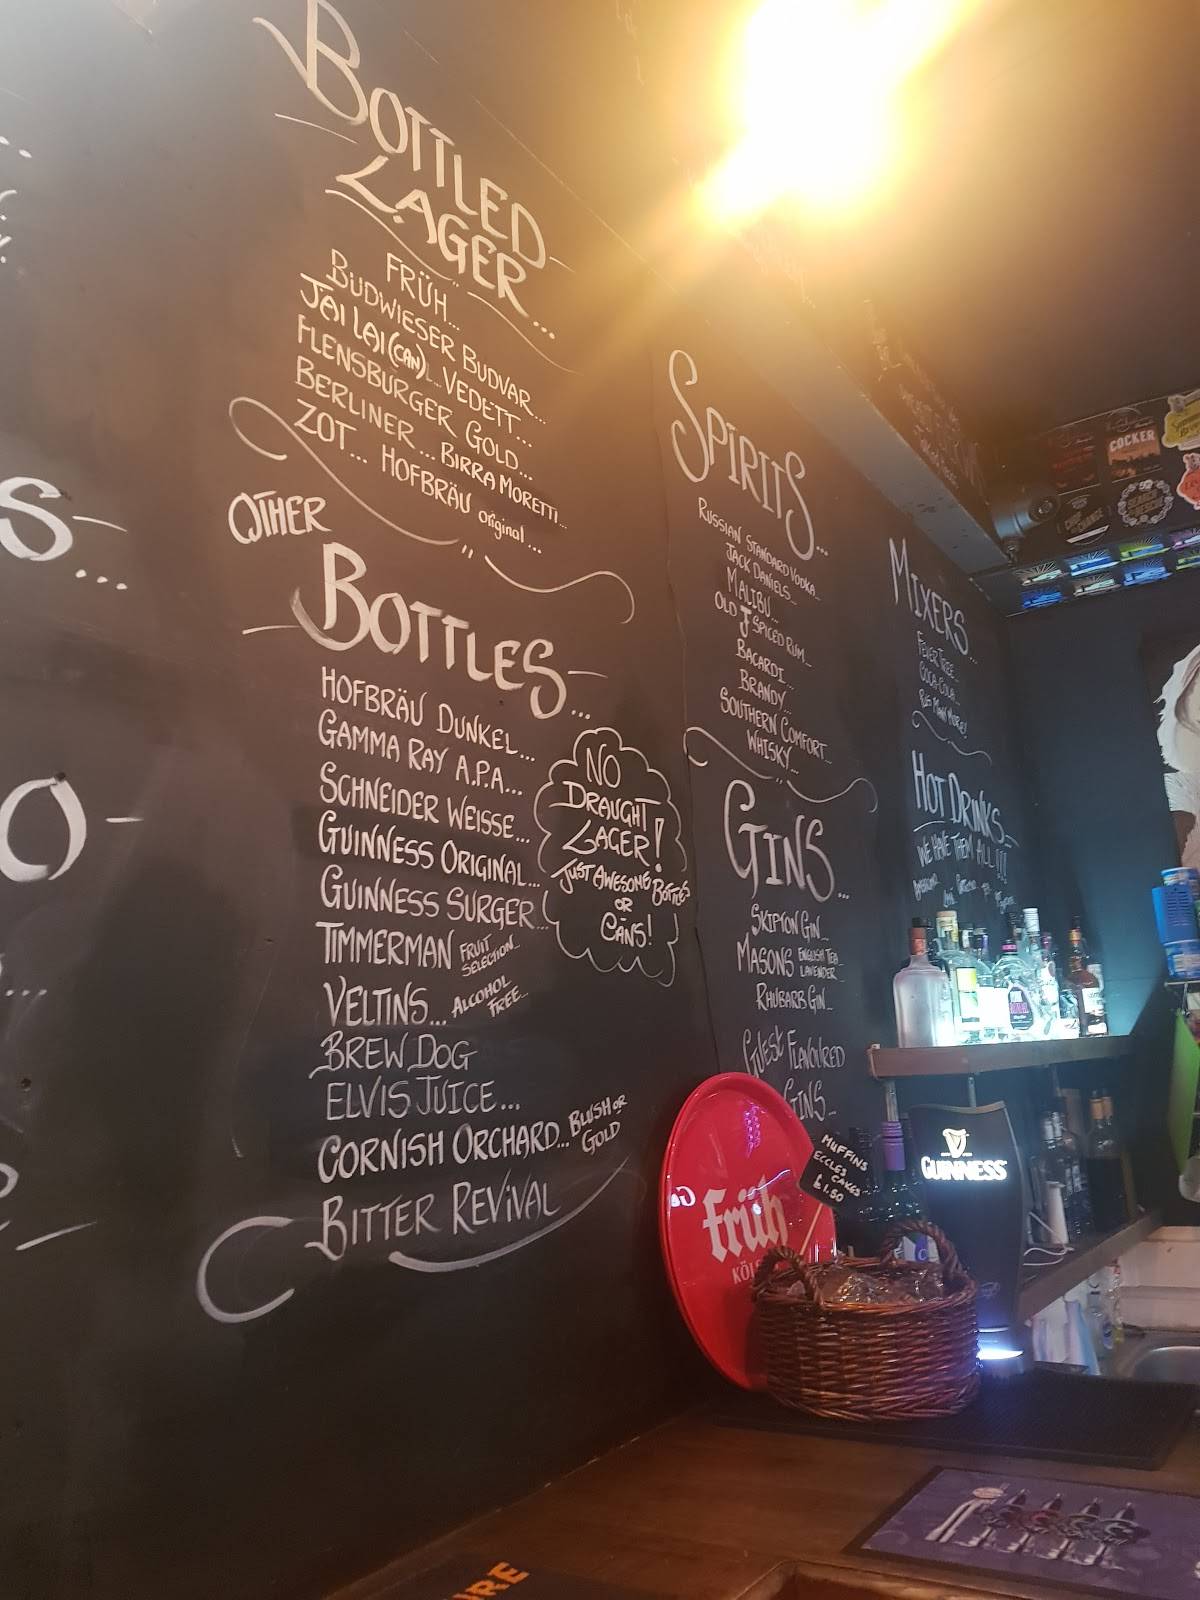 BOTTLED
LAGER...
FRÜH...
BUDWIESER BUDVAR...
JAI LAI (CAN)... VEDETT...
FLENSBURGER GOLD...
BERLINER... BIRRA MORETTI...
ZOT... HOFBRÄU original...
OTHER
BOTTLES...
HOFBRÄU DUNKEL...
GAMMA RAY A.P.A...
SCHNEIDER WEISSE...
GUINNESS ORIGINAL...
GUINNESS SURGER...
TIMMERMAN FRUIT SELECTION...
VELTINS... ALCOHOL FREE...
BREW DOG
ELVIS JUICE...
CORNISH ORCHARD... BLUSH OR GOLD
BITTER REVIVAL
NO
DRAUGHT
LAGER!
JUST AWESOME BOTTLES
OR
CANS!
SPIRITS...
RUSSIAN STANDARD VODKA...
JACK DANIELS...
MALIBU...
OLD J SPICED RUM...
BACARDI...
BRANDY...
SOUTHERN COMFORT...
WHISKY...
GINS...
SKIPTON GIN...
MASONS ENGLISH TEA... LAVENDER...
RHUBARB GIN...
GUEST FLAVOURED
GINS...
MIXERS...
FEVER TREE...
COCA-COLA...
PLUS MANY MORE!
HOT DRINKS...
WE HAVE THEM ALL!!!
COCKER
früh
KÖL
MUFFINS
ECCLES
CAKES
£1.50
GUINNESS